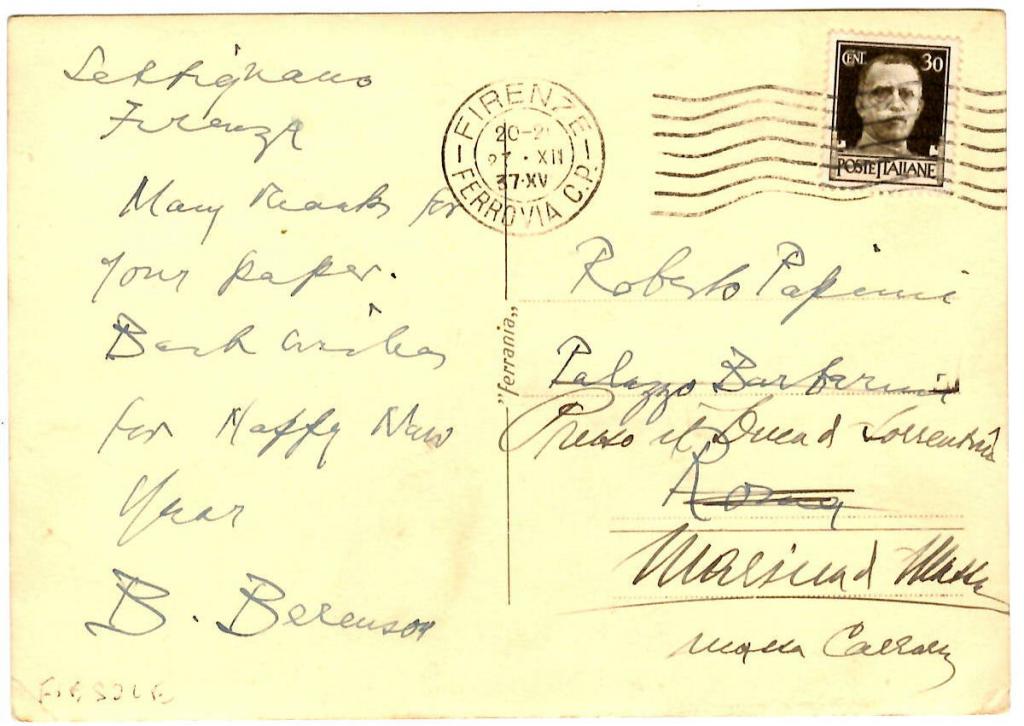 Settignano
Firenze
Many thanks for
your paper.
Best wishes
for Happy New
Year
B. Berenson
FIESOLE
FIRENZE
20-2
27 · XII
37·XV
FERROVIA C.P.
CENT. 30
POSTE ITALIANE
"ferrania"
Roberto Papini
Palazzo Barberini
Presso il Duca di Sorrentina
Roma
Marina di Massa
Massa Carrara